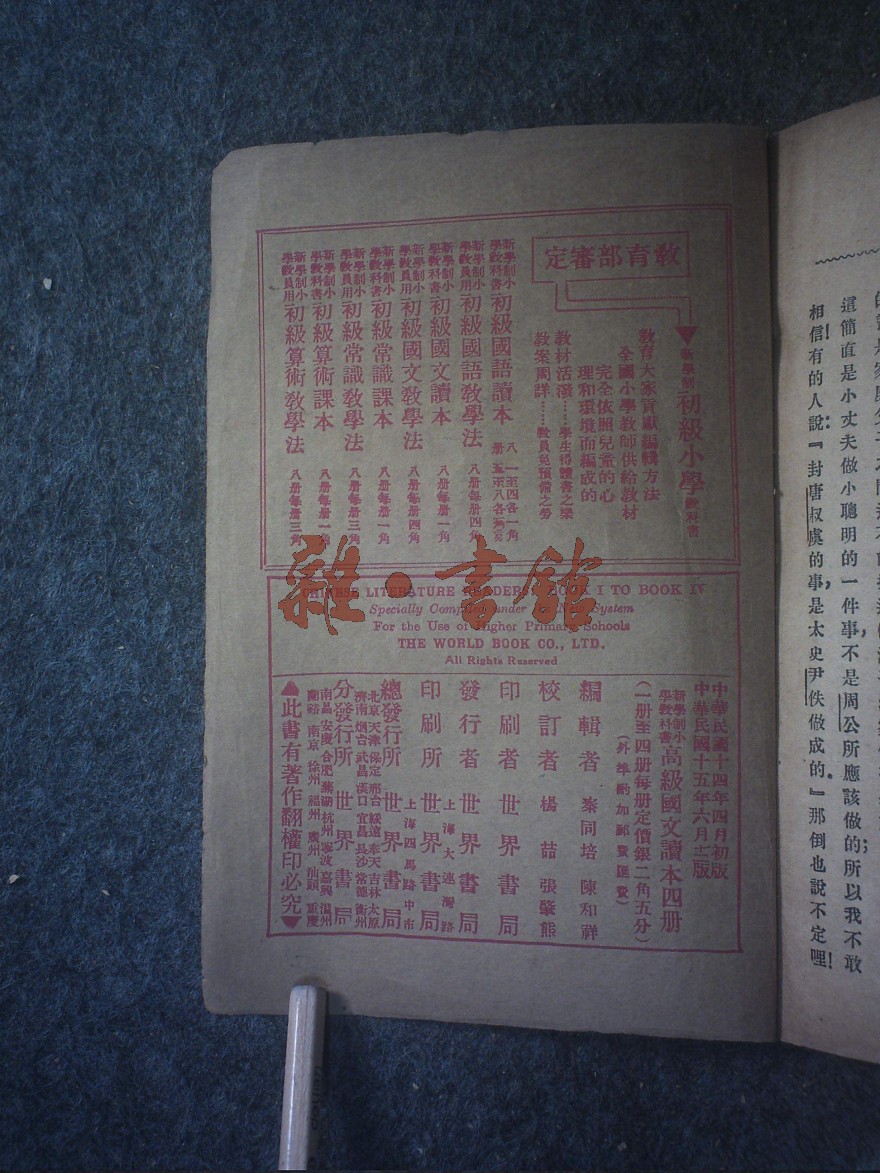 教育部審定
新學制初級小學教科書
教育大家貢獻編輯方法
全國小學教師供給教材
完全依照兒童的心
理和環境而編成的
教材活潑……學生得讀書之樂
教案周詳……教員免預備之勞
新學制小學教科書初級國語讀本 八册 一至四各一角
新學制小學教員用初級國語教學法 八册每册四角
新學制小學教科書初級國文讀本 八册每册一角
新學制小學教員用初級國文教學法 八册每册四角
新學制小學教科書初級常識課本 八册每册一角
新學制小學教員用初級常識教學法 八册每册三角
新學制小學教科書初級算術課本 八册每册一角
新學制小學教員用初級算術教學法 八册每册三角
雜·書館
CHINESE LITERATURE READERS BOOK I TO BOOK IV
Specially Compiled under the New System
For the Use of Higher Primary Schools
THE WORLD BOOK CO., LTD.
All Rights Reserved
中華民國十四年四月初版
中華民國十五年六月七版
新學制小學教科書高級國文讀本四册
（一册至四册每册定價銀二角五分）
（外埠酌加郵費匯費）
編輯者 秦同培 陳和祥
校訂者 楊喆 張肇熊
印刷者 世界書局
發行者 世界書局
印刷所 上海大連灣路 世界書局
總發行所 上海四馬路中市 世界書局
北京 天津 保定 邢台 綏遠 奉天 吉林 太原
濟南 烟台 武昌 漢口 宜昌 長沙 常德 衡州
分發行所 世界書局
南昌 安慶 合肥 蕪湖 杭州 寧波 嘉興 溫州
蘭谿 南京 徐州 福州 廣州 汕頭 重慶
▲此書有著作權翻印必究▼
這簡直是小丈夫做小聰明的一件事，不是周公所應該做的；所以我不敢
相信！有的人說：『封唐叔虞的事，是太史尹佚做成的。』那倒也說不定哩！